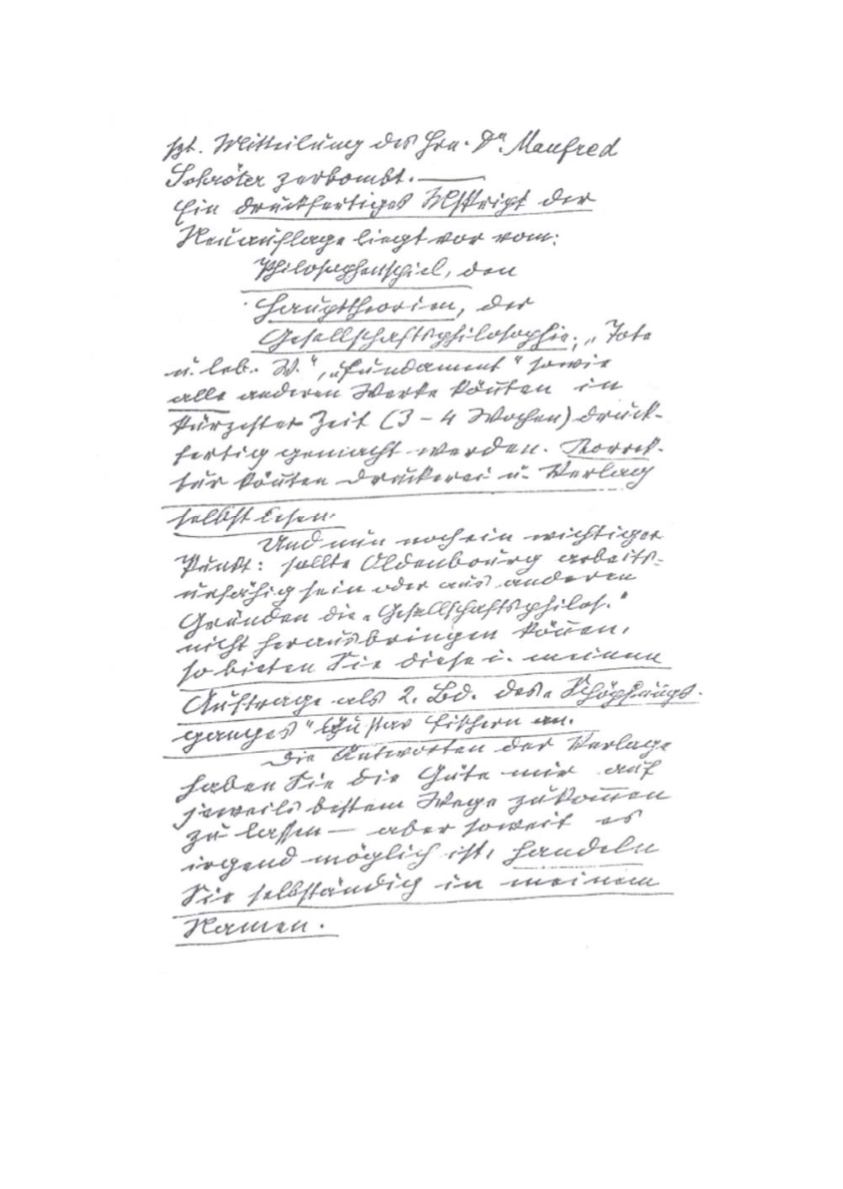 lgt. Mitteilung des Hrn. Dr. Manfred
Schröter zerbombt. —
Ein druckfertiges Mskript der
Neuauflage liegt vor vom:
Philosophenspiel, den
Haupttheorien, der
Gesellschaftsphilosophie; „Tote
u. leb. W.", „Fundament" sowie
alle anderen Werke könnten in
kürzester Zeit (3 – 4 Wochen) druck-
fertig gemacht werden. Korrek-
tur könnten Druckerei u. Verlag
selbst lesen.
Und nun noch ein wichtiger
Punkt: sollte Oldenbourg arbeits-
unfähig sein oder aus anderen
Gründen die „Gesellschaftsphilos."
nicht herausbringen können,
so bieten Sie diese i. meinem
Auftrage als 2. Bd. des „Schöpfungs-
ganges" Gustav Fischern an.
Die Antworten der Verlage
haben Sie die Güte mir auf
jeweils bestem Wege zukommen
zu lassen — aber soweit es
irgend möglich ist, handeln
Sie selbständig in meinem
Namen.